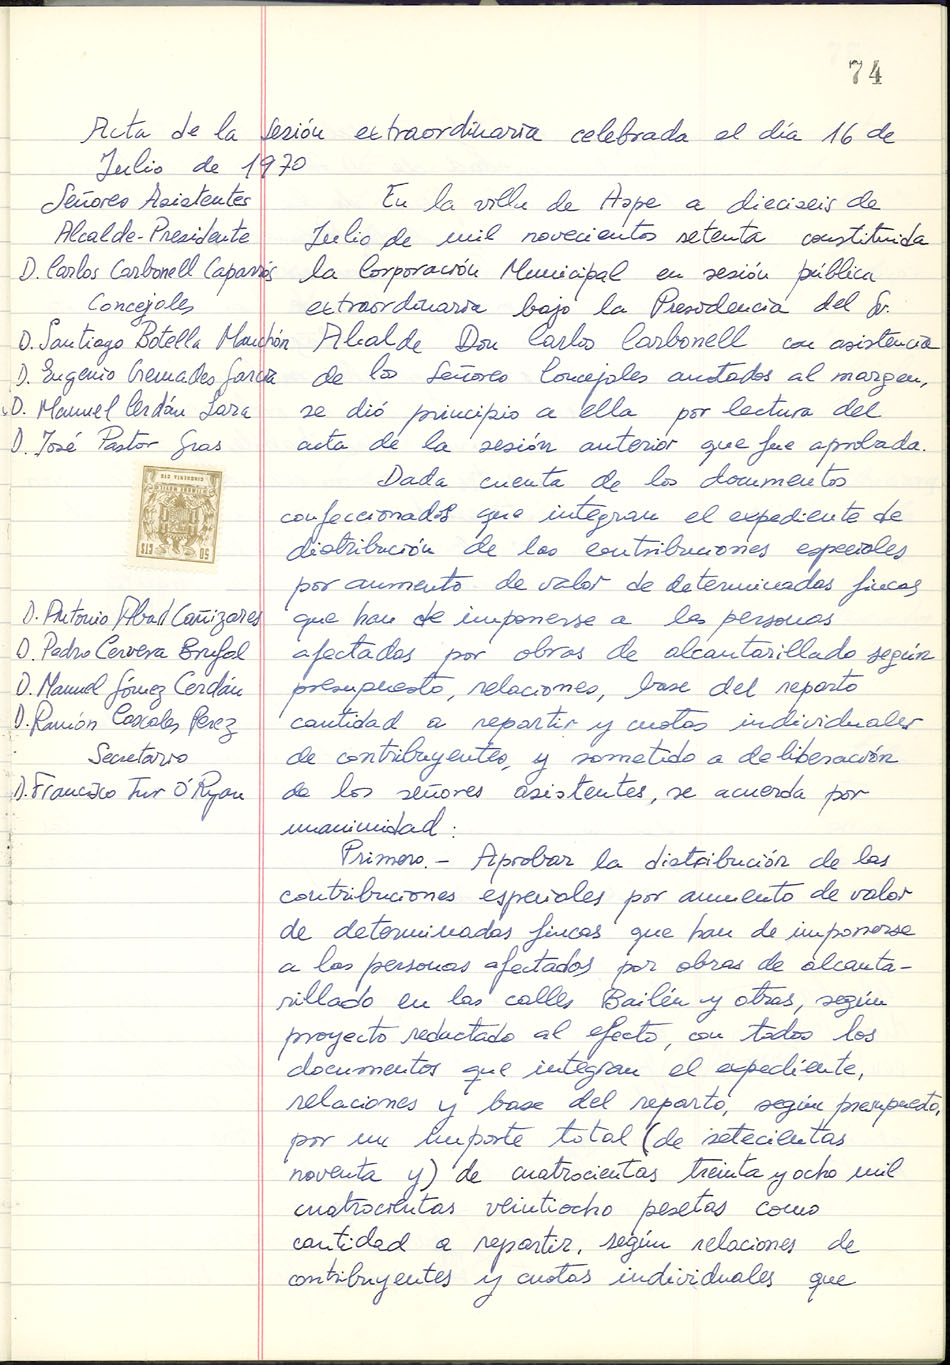 74
Acta de la sesión extraordinaria celebrada el día 16 de
Julio de 1970
Señores Asistentes
Alcalde-Presidente
D. Carlos Carbonell Caparrós
Concejales
D. Santiago Botella Manchón
D. Eugenio Cremades García
D. Manuel Cerdán Lara
D. José Pastor Gras
50 CTS
CINCUENTA CTS
D. Antonio Abad Cañizares
D. Pedro Cervera Brufal
D. Manuel Gómez Cerdán
D. Ramón Cascales Perez
Secretario
D. Francisco Tur O'Ryan
En la villa de Aspe a dieciseis de
Julio de mil novecientos setenta constituida
la Corporación Municipal en sesión pública
extraordinaria bajo la Presidencia del Sr.
Alcalde Don Carlos Carbonell con asistencia
de los Señores Concejales anotados al margen,
se dió principio a ella por lectura del
acta de la sesión anterior que fue aprobada.
Dada cuenta de los documentos
confeccionados que integran el expediente de
distribución de las contribuciones especiales
por aumento de valor de determinadas fincas
que han de imponerse a las personas
afectadas por obras de alcantarillado según
presupuesto, relaciones, base del reparto
cantidad a repartir y cuotas individuales
de contribuyentes, y sometido a deliberación
de los señores asistentes, se acuerda por
unanimidad:
Primero.- Aprobar la distribución de las
contribuciones especiales por aumento de valor
de determinadas fincas que han de imponerse
a las personas afectadas por obras de alcanta-
rillado en las calles Bailén y otras, según
proyecto redactado al efecto, con todos los
documentos que integran el expediente,
relaciones y base del reparto, según presupuesto,
por un importe total (de setecientas
noventa y) de cuatrocientas treinta y ocho mil
cuatrocientas veintiocho pesetas como
cantidad a repartir, según relaciones de
contribuyentes y cuotas individuales que